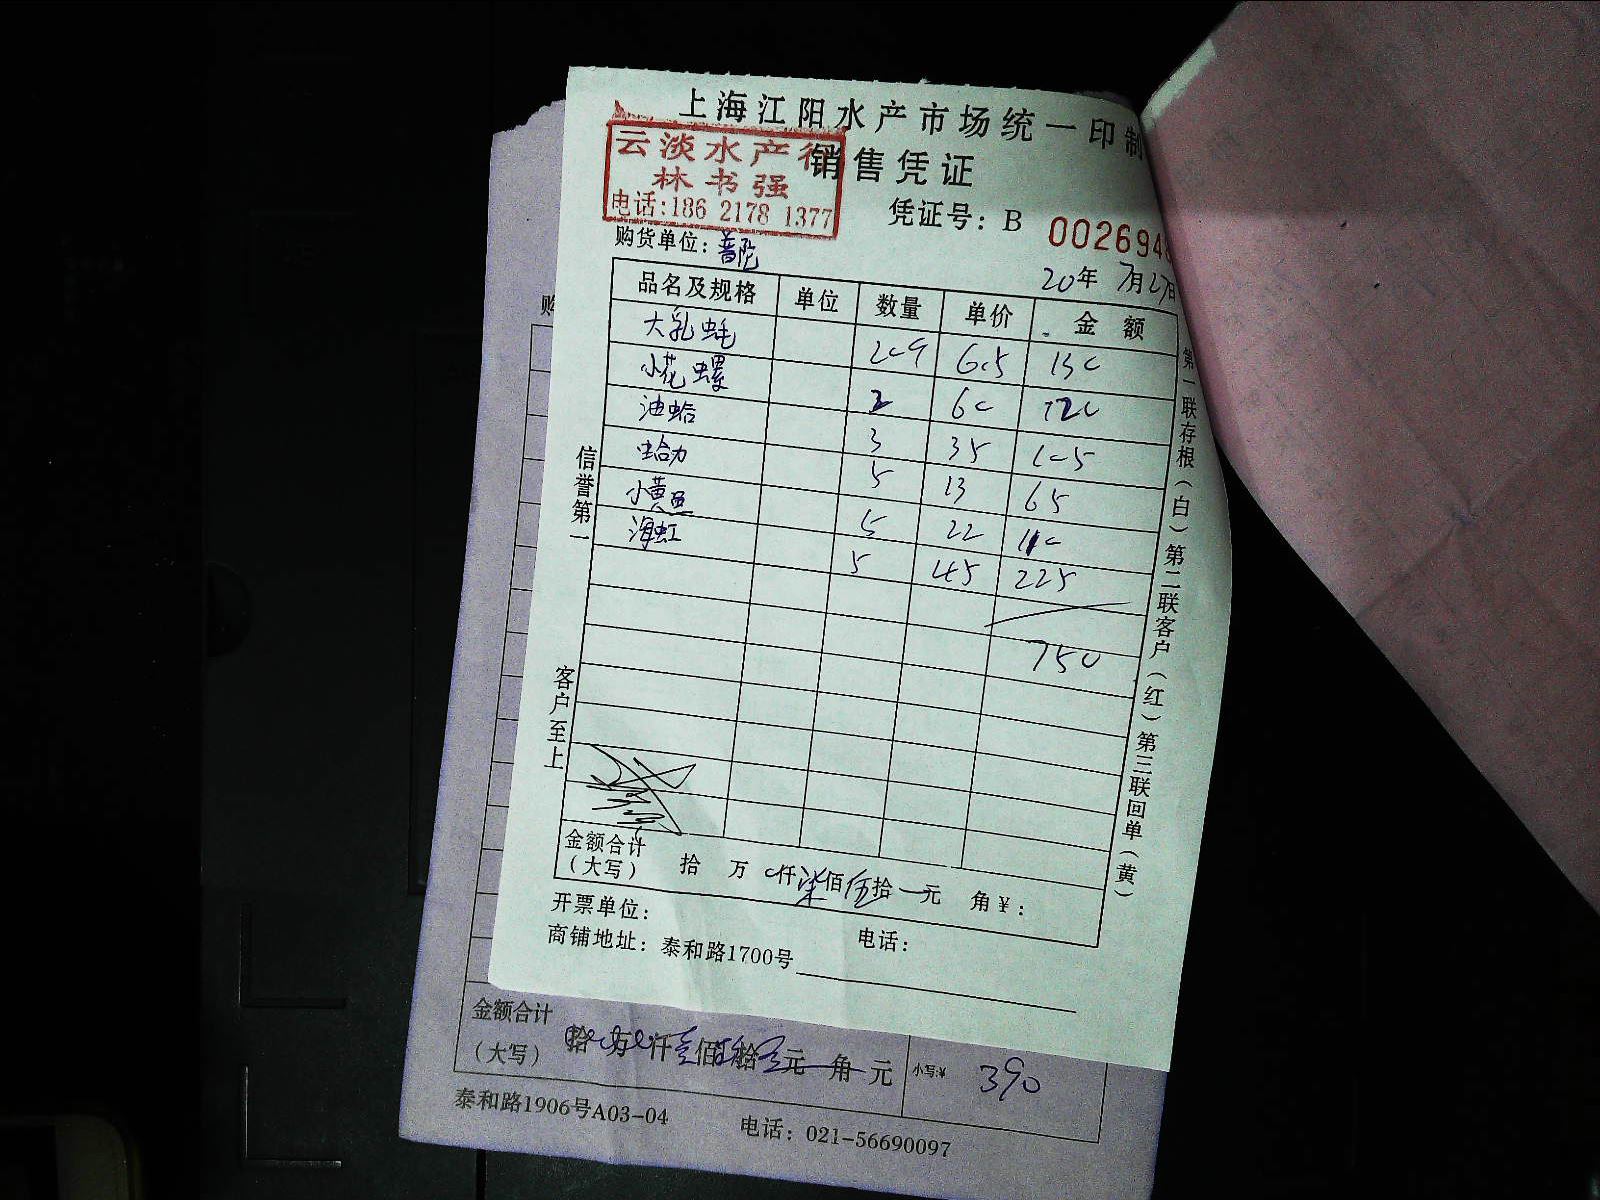 上海江阳水产市场统一印制
云淡水产行
销售凭证
林书强
电话:186 2178 1377
凭证号: B 0026948
购货单位: 普陀
20年 7月27日
品名及规格 单位 数量 单价 金额
大乳蚝 209 6.5 130
小花螺 2 60 120
油蛤 3 35 105
蛤力 5 13 65
小黄鱼 5 22 110
海虹 5 45 225
750
信誉第一
客户至上
第一联存根(白)第二联客户(红)第三联回单(黄)
金额合计
(大写) 拾 万 仟 柒佰 伍拾 元 角 ¥:
开票单位: 电话:
商铺地址: 泰和路1700号
购
金额合计
(大写) 拾 万 仟 佰 拾 元 角 元 小写:¥ 390
泰和路1906号A03-04 电话: 021-56690097